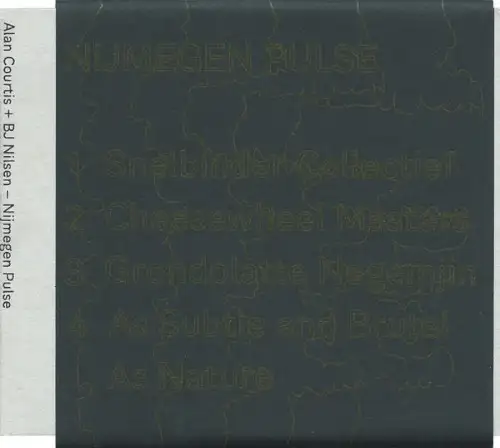 Alan Courtis + BJ Nilsen – Nijmegen Pulse
NIJMEGEN PULSE
1 Snelbinder Colloquei
2 Cheesewheel Masters
3
4 As Subtle and Brutal
As Nature